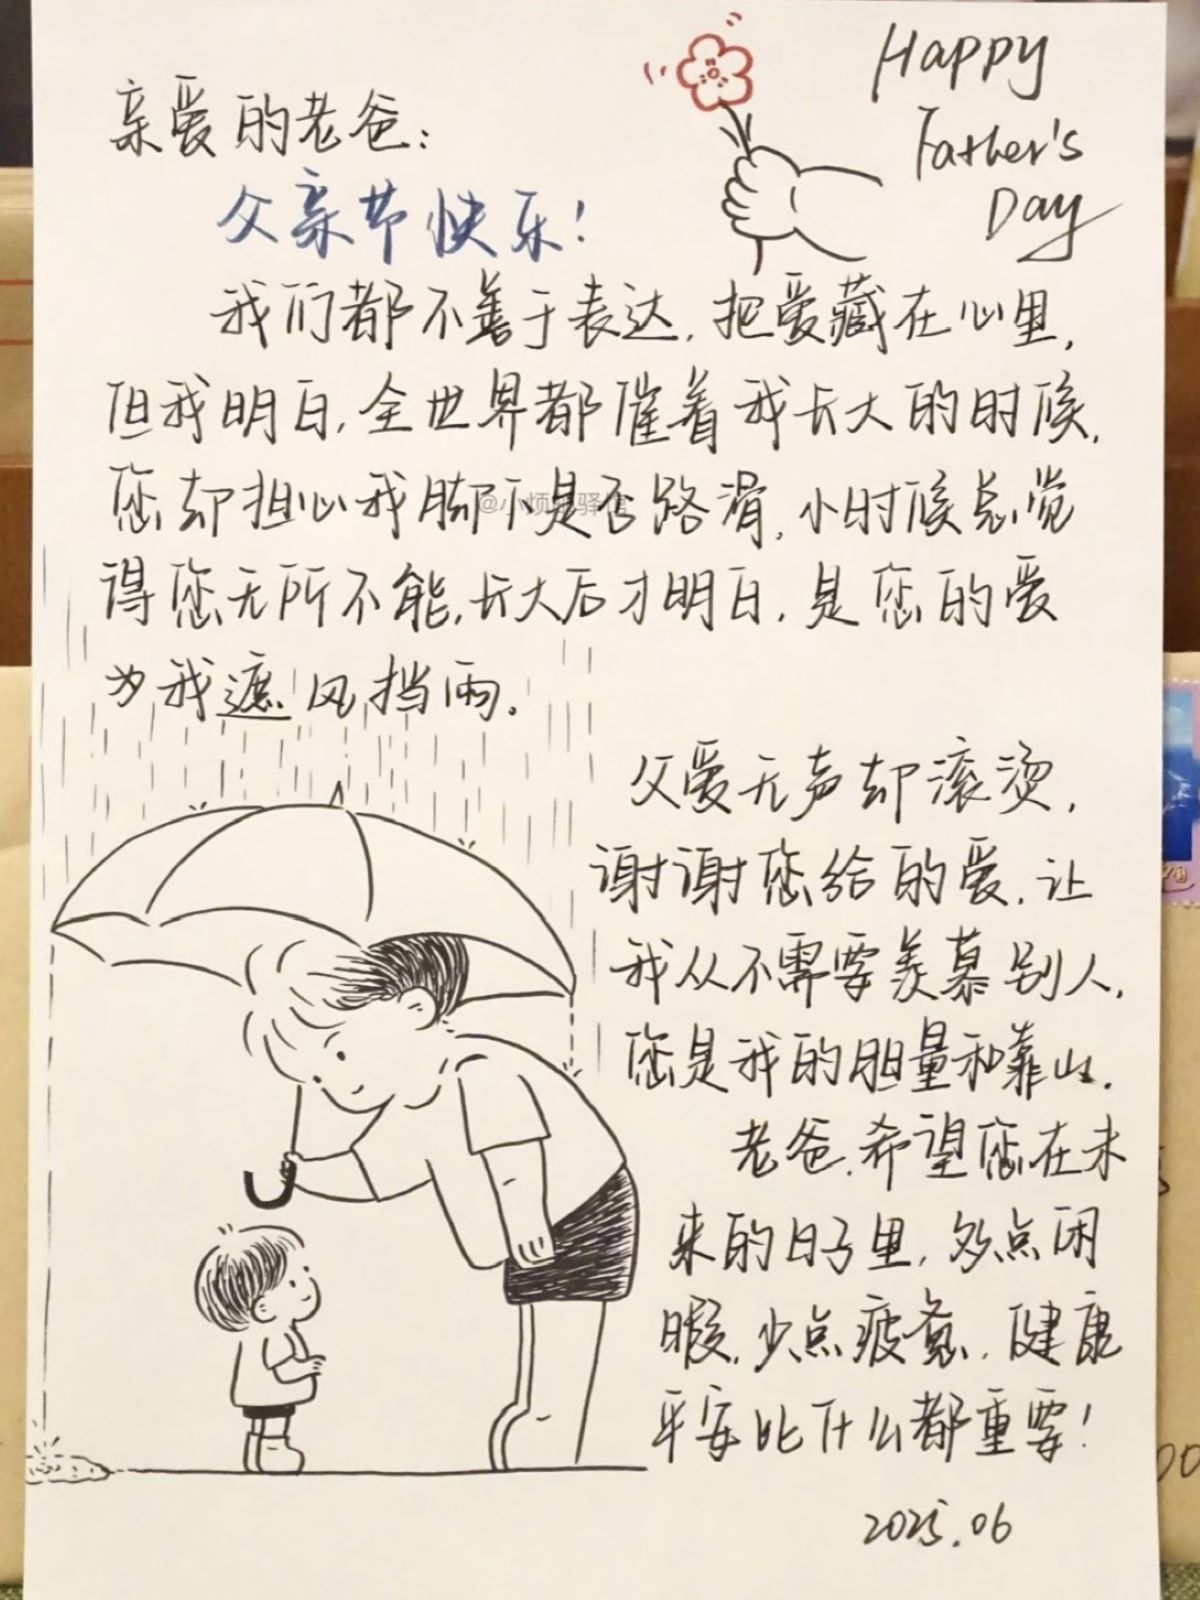 Happy
Father's
Day
亲爱的老爸：
父亲节快乐！
我们都不善于表达，把爱藏在心里，
但我明白，全世界都催着我长大的时候，
您却担心我脚下是否路滑，小时候总觉
得您无所不能，长大后才明白，是您的爱
为我遮风挡雨。
父爱无声却滚烫，
谢谢您给的爱，让
我从不需要羡慕别人，
您是我的胆量和靠山。
老爸，希望您在未
来的日子里，多点闲
暇，少点疲惫，健康
平安比什么都重要！
2025.06